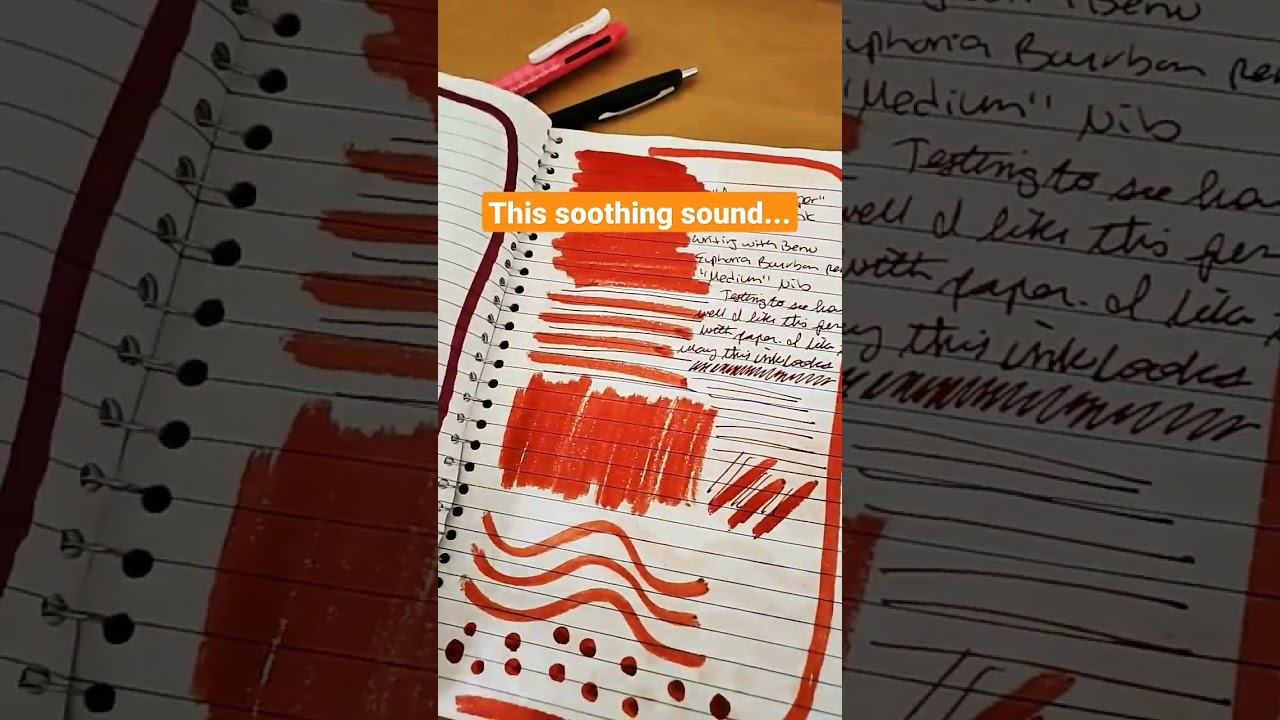 This soothing sound...
Writing with Benu
Euphoria Bourbon
"Medium" Nib
Testing to see
well I like this
with paper. I like
way this ink looks